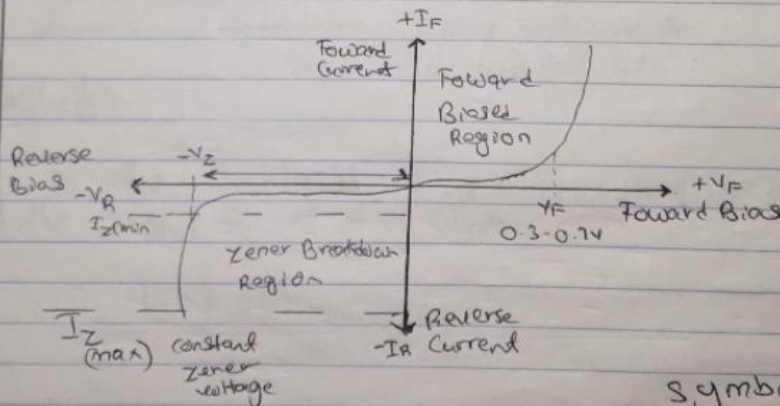 +IF
Foward
Current
Foward
Biased
Region
Reverse
Bias
-VZ
-VR
+VF
Foward Bias
IZ(min
VF
0.3-0.7V
Zener Breakdown
Region
IZ
(max)
constant
zener
voltage
Reverse
-IR Current
Symbo